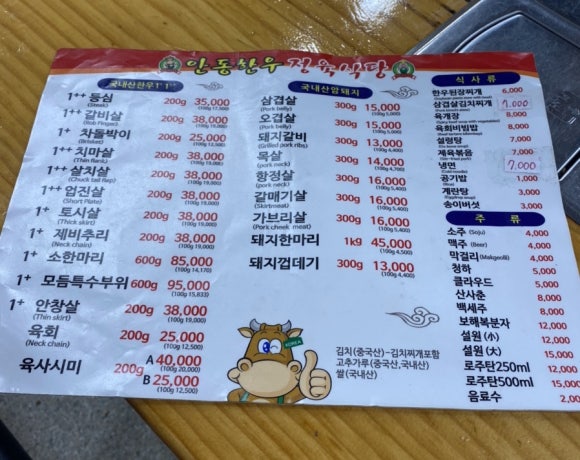 안동한우 정육식당
국내산한우1⁺ 1⁺⁺
1⁺⁺ 등심 200g 35,000
(Steak) (100g 17,500)
1⁺⁺ 갈비살 200g 38,000
(Rib Finger) (100g 19,000)
1⁺ 차돌박이 200g 25,000
(Brisket) (100g 12,500)
1⁺⁺ 치마살 200g 38,000
(Thin flank) (100g 19,000)
1⁺⁺ 살치살 200g 38,000
(Chuck tail flap) (100g 19,000)
1⁺⁺ 업진살 200g 38,000
(Short Plate) (100g 19,000)
1⁺ 토시살 200g 38,000
(Thick skirt) (100g 19,000)
1⁺ 제비추리 200g 38,000
(Neck chain) (100g 19,000)
1⁺ 소한마리 600g 85,000
(100g 14,170)
1⁺ 모듬특수부위 600g 95,000
(100g 15,833)
1⁺ 안창살 200g 38,000
(Thin skirt) (100g 19,000)
육회 200g 25,000
(Neck chain) (100g 12,500)
육사시미 200g A 40,000
(100g 20,000)
B 25,000
(100g 12,500)
국내산암돼지
삼겹살 300g 15,000
(Pork belly) (100g 5,000)
오겹살 300g 15,000
(Pork belly) (100g 5,000)
돼지갈비 300g 13,000
(Grilled pork ribs) (100g 4,400)
목살 300g 14,000
(pork neck) (100g 4,700)
항정살 300g 16,000
(pork neck) (100g 5,400)
갈매기살 300g 16,000
(Skirtmeat) (100g 5,400)
가브리살 300g 16,000
(Pork cheek meat) (100g 5,400)
돼지한마리 1k9 45,000
(100g 4,500)
돼지껍데기 300g 13,000
(100g 4,400)
KOREA
김치(중국산)-김치찌개포함
고추가루(중국산,국내산)
쌀(국내산)
식사류
한우된장찌개 6,000
삼겹살김치찌개 7,000
육개장 8,000
육회비빔밥 8,000
설렁탕 7,000
제육볶음 7,000
냉면 7,000
(Cold noodle)
공기밥 1,000
(Rice)
계란탕 3,000
송이버섯 3,000
주류
소주 (Soju) 4,000
맥주 (Beer) 4,000
막걸리 (Makgeolli) 4,000
청하 5,000
클라우드 5,000
산사춘 8,000
백세주 8,000
보해복분자 12,000
설원 (小) 12,000
설원 (大) 15,000
로주탄250ml 12,000
로주탄500ml 15,000
음료수 2,00